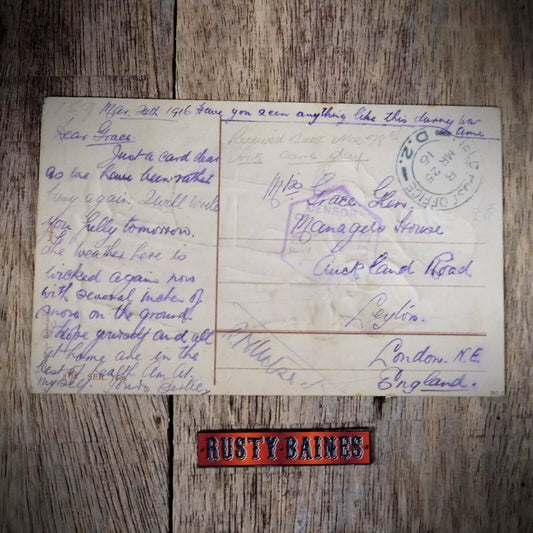 Mar. 20th 1916 Have you seen anything like this during war time
Dear Grace.
Just a card dear
as we have been rather
busy again, I will write
you fully tomorrow.
The weather here is
wicked again now
with several inches of
snow on the ground.
Hope yourself and all
at home are in the
best of health. Am A1.
myself. Yours Bertie
Received
same day
Miss Grace
Managers House
Auckland Road
Leyton.
London. N.E.
England.
FIELD POST OFFICE
D.2.
R
MR 25
16
CENSOR
RUSTY BAINES